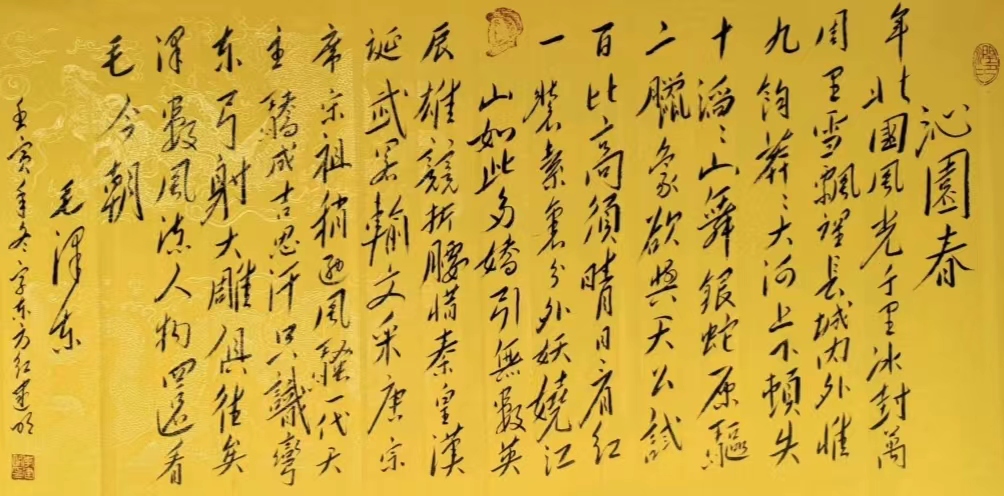 毛泽东主席诞辰一百二十九周年
沁園春
北國風光千里冰封萬
里雪飄望長城内外惟
馀莽〻大河上下頓失
滔〻山舞銀蛇原驅
臘象欲與天公試
比高須晴日看红
裝素裹分外妖嬈江
山如此多嬌引無數英
雄競折腰惜秦皇漢
武畧輸文采唐宗
宋祖稍逊風騷一代天
驕成吉思汗只識彎
弓射大雕俱往矣
數風流人物還看
今朝
毛泽东
壬寅年冬 字东方红建明